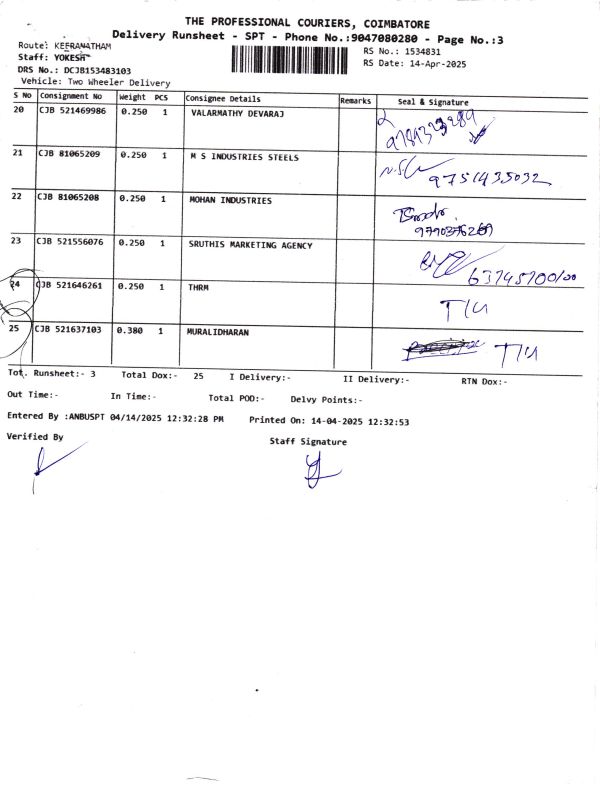 THE PROFESSIONAL COURIERS, COIMBATORE
Delivery Runsheet - SPT - Phone No.:9047080280 - Page No.:3
Route: KEERANATHAM
RS No.: 1534831
Staff: YOKESH
RS Date: 14-Apr-2025
DRS No.: DCJB153483103
Vehicle: Two Wheeler Delivery
S No Consignment No Weight PCS Consignee Details Remarks Seal & Signature
20 CJB 521469986 0.250 1 VALARMATHY DEVARAJ
21 CJB 81065209 0.250 1 M S INDUSTRIES STEELS 9751435032
22 CJB 81065208 0.250 1 MOHAN INDUSTRIES
23 CJB 521556076 0.250 1 SRUTHIS MARKETING AGENCY
24 CJB 521646261 0.250 1 THRM T/U
25 CJB 521637103 0.380 1 MURALIDHARAN T/U
Tot. Runsheet:- 3 Total Dox:- 25 I Delivery:- II Delivery:- RTN Dox:-
Out Time:- In Time:- Total POD:- Delvy Points:-
Entered By :ANBUSPT 04/14/2025 12:32:28 PM Printed On: 14-04-2025 12:32:53
Verified By Staff Signature